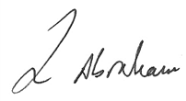 L Abraham